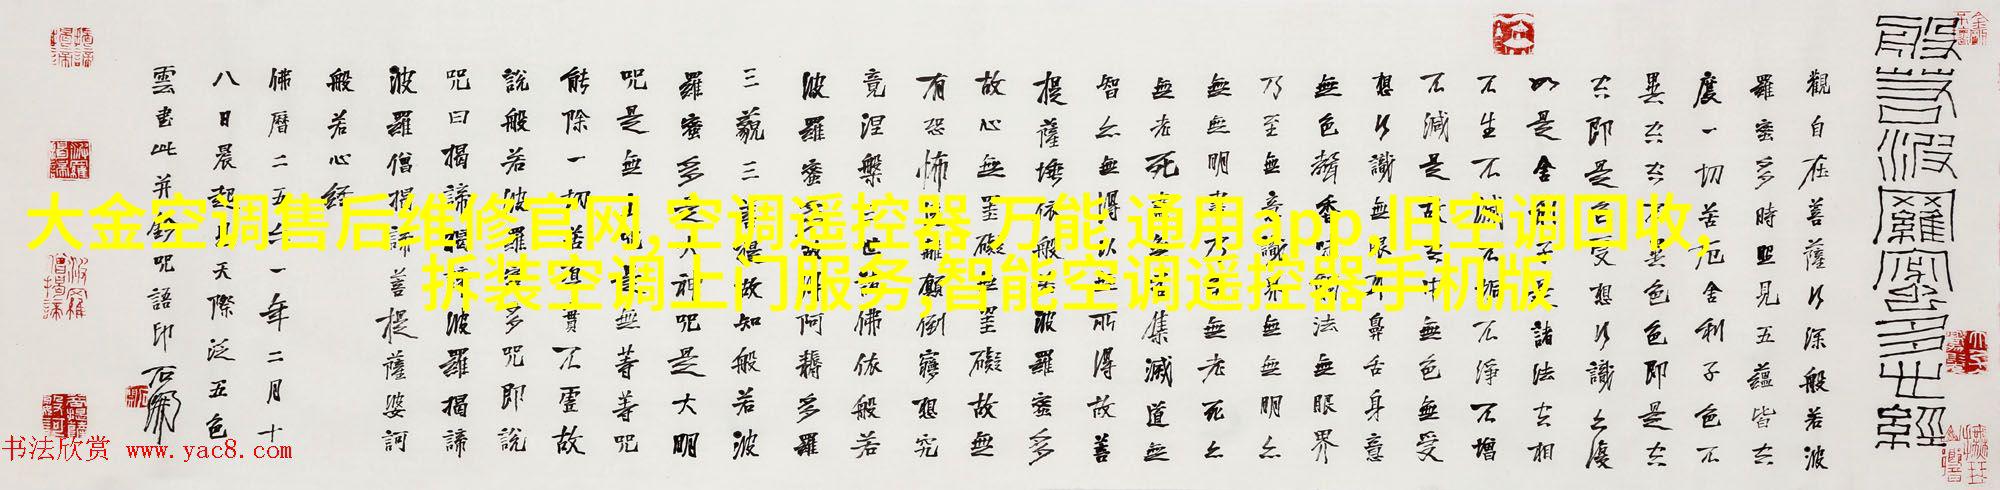 般若波羅蜜多心經
觀自在菩薩行深般若波
羅蜜多時照見五蘊皆空
度一切苦厄舍利子色不
異空空不異色色即是空
空即是色受想行識亦復
如是舍利子是諸法空相
不生不滅不垢不淨不增
不減是故空中無色無受
想行識無眼耳鼻舌身意
無色聲香味觸法無眼界
乃至無意識界無無明亦
無無明盡乃至無老死亦
無老死盡無苦集滅道無
智亦無得以無所得故菩
提薩埵依般若波羅蜜多
故心無罣礙無罣礙故無
有恐怖遠離顛倒夢想究
竟涅槃三世諸佛依般若
波羅蜜多故得阿耨多羅
三藐三菩提故知般若波
羅蜜多是大神咒是大明
咒是無上咒是無等等咒
能除一切苦真實不虛故
說般若波羅蜜多咒即說
咒曰揭諦揭諦波羅揭諦
波羅僧揭諦菩提薩婆訶
般若心經
佛曆二五六一年二月十
八日晨起天際泛五色
雲書此并咒語印 石
大金空调售后维修官网,空调遥控器 万能 通用app,旧空调回收,
拆装空调上门服务,智能空调遥控器手机版
书法欣赏 www.yac8.com